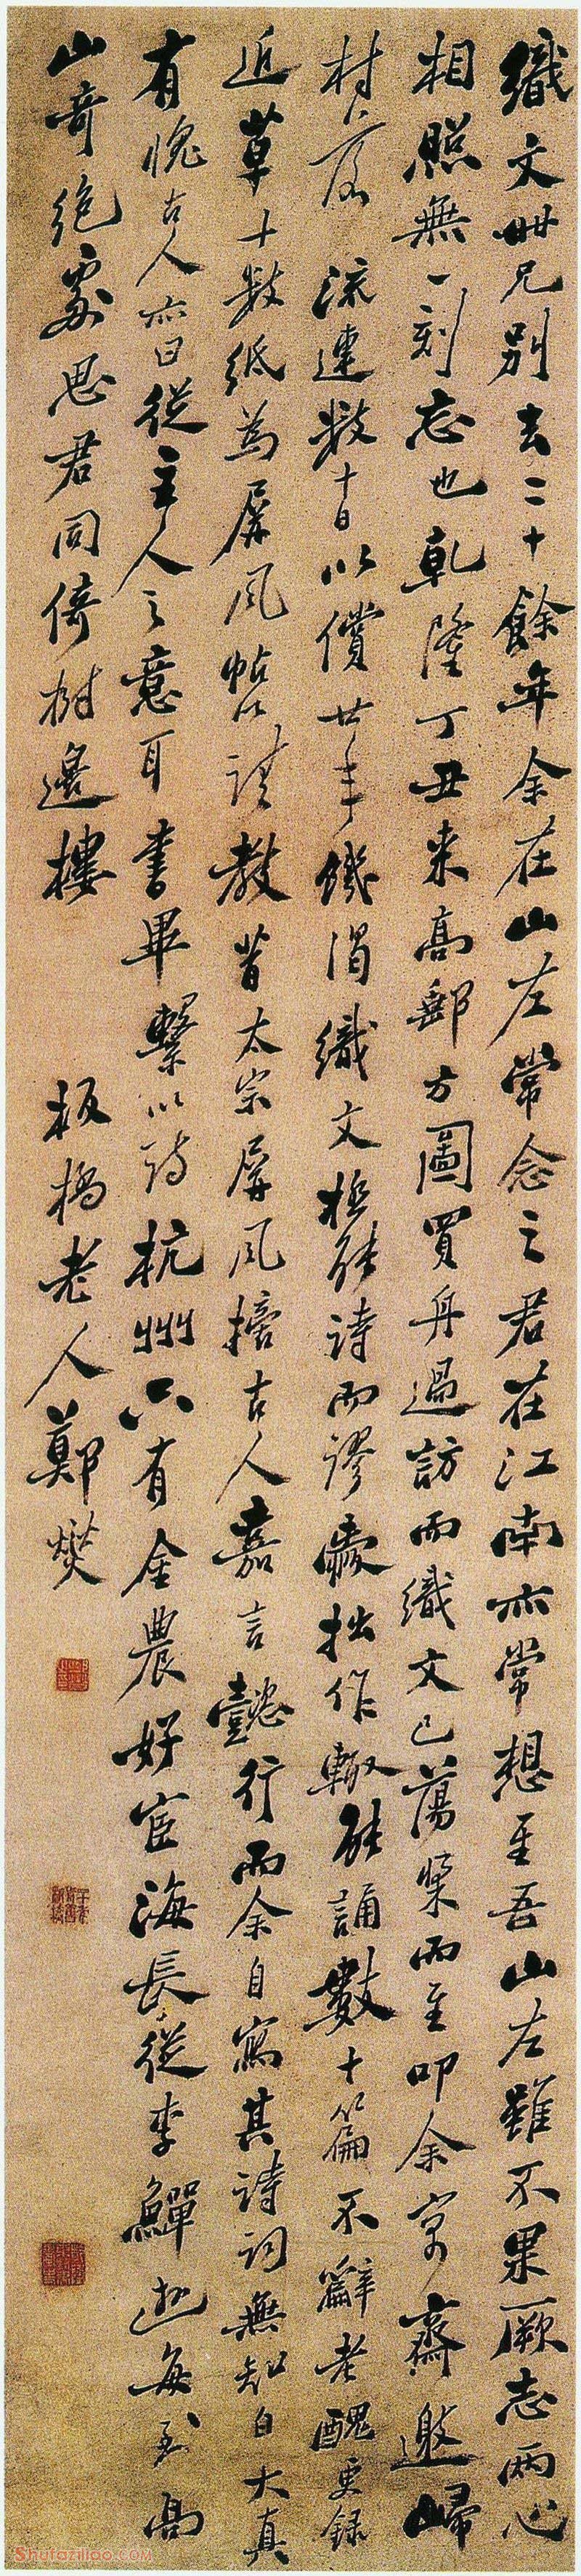 織文世兄別去二十餘年余在山左常念之君在江南亦常想至吾山左雖不果厥志兩心
相照無一刻忘也乾隆丁丑来高郵方圖買舟過訪而織文已蕩槳而至叩余寓齋邀歸
村落流連數十日以償廿年饑渴織文極能詩而謬愛拙作輒能誦數十篇不辭老醜更錄
近草十數紙為屏風帖以請教昔太宗屏風摘古人嘉言懿行而余自寫其詩詞無知自大真
有愧古人亦曰從主人之意耳書畢繫以詩杭州只有金農好宦海長從李鱓遊每到高
山奇絕處思君同倚樹邊樓
板橋老人鄭燮
Shufaziliao.COM